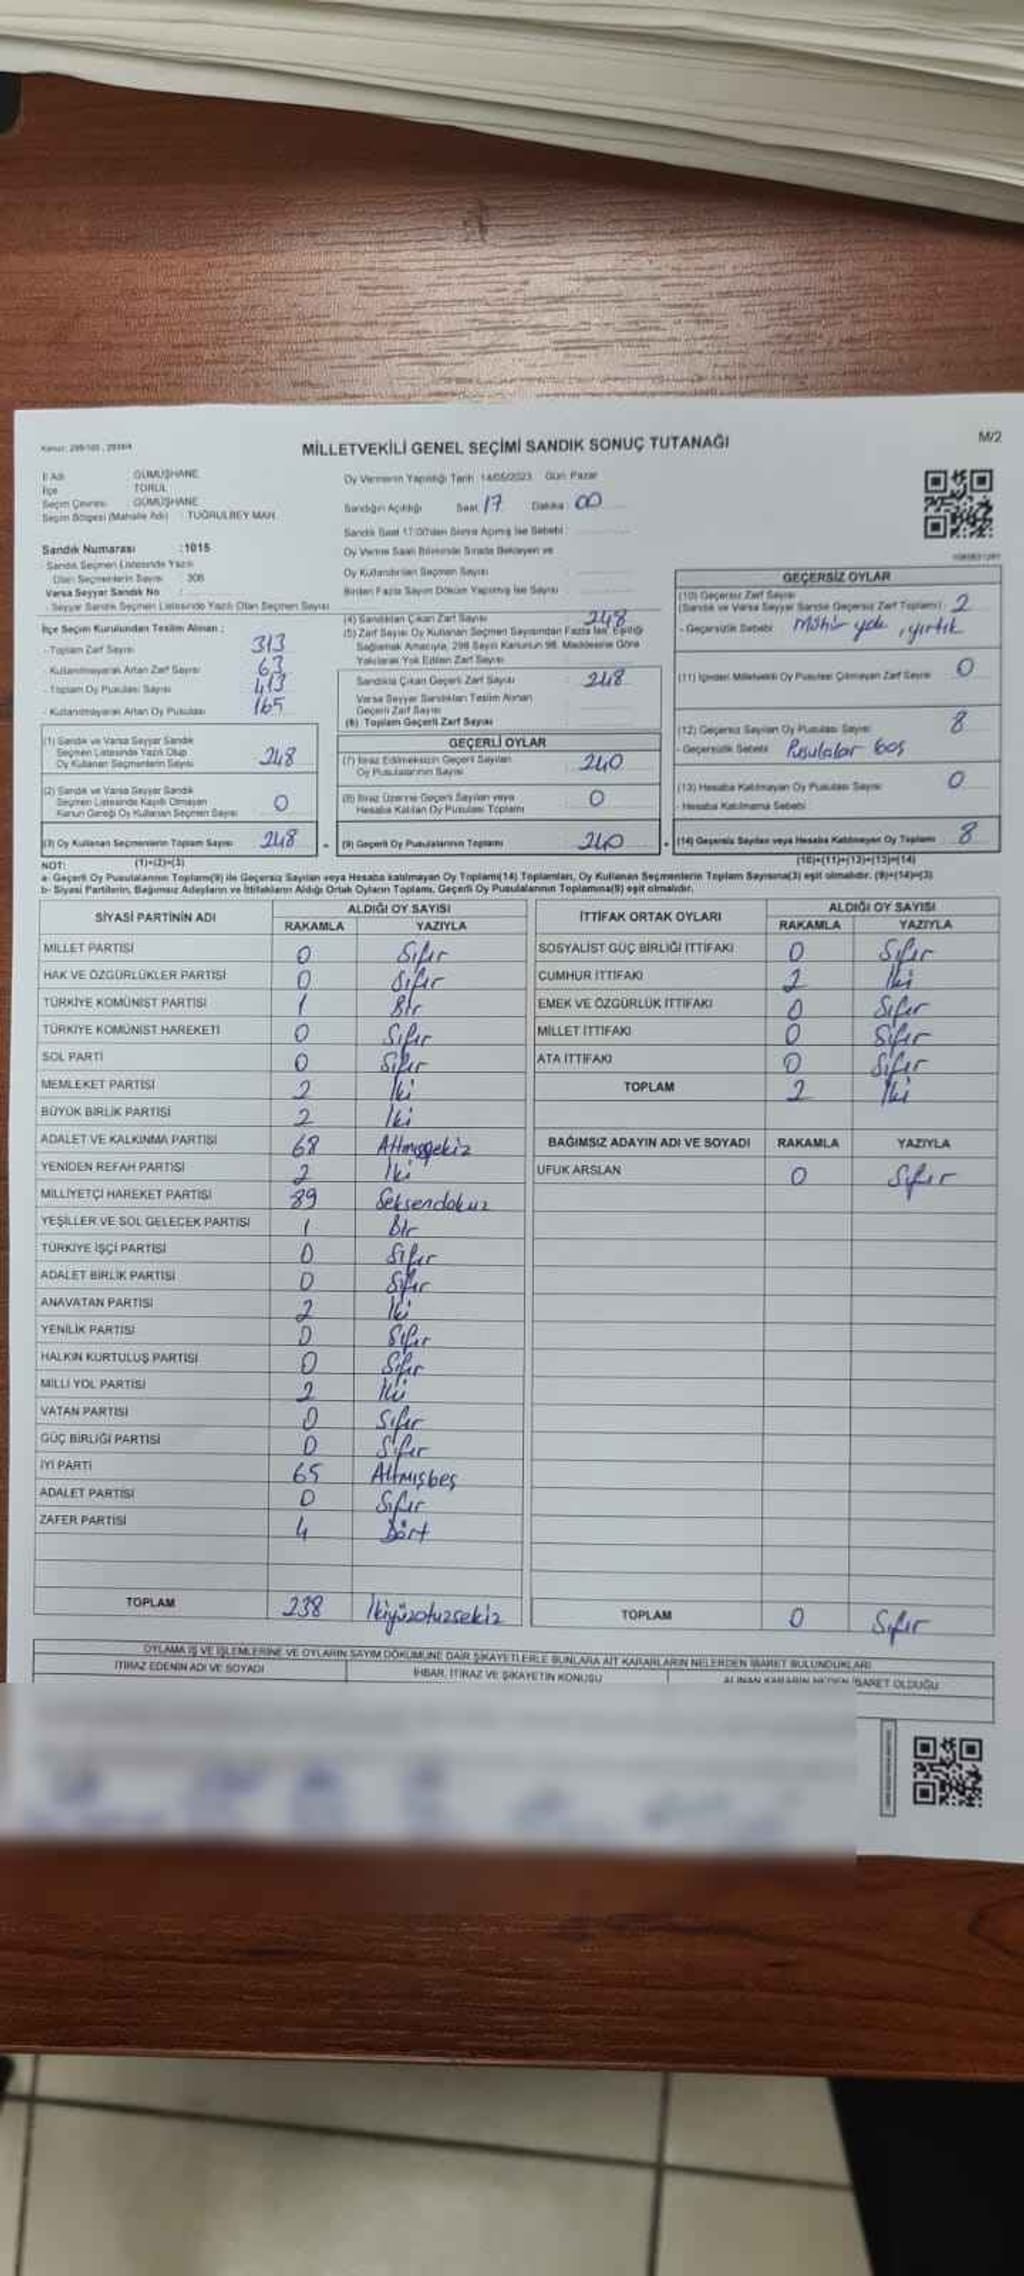 M/2
MİLLETVEKİLİ GENEL SEÇİMİ SANDIK SONUÇ TUTANAĞI
İl Adı : GÜMÜŞHANE
İlçe : TORUL
Seçim Çevresi : GÜMÜŞHANE
Seçim Bölgesi (Mahalle Adı) : TUĞRULBEY MAH.
Sandık Numarası :1015
Sandık Seçmen Listesinde Yazılı
Olan Seçmenlerin Sayısı : 308
Varsa Seyyar Sandık No :
Seyyar Sandık Seçmen Listesinde Yazılı Olan Seçmen Sayısı
İlçe Seçim Kurulundan Teslim Alınan :
- Toplam Zarf Sayısı 313
- Kullanılmayarak Artan Zarf Sayısı 63
- Toplam Oy Pusulası Sayısı 413
- Kullanılmayarak Artan Oy Pusulası 165
(1) Sandık ve Varsa Seyyar Sandık
Seçmen Listesinde Yazılı Olup
Oy Kullanan Seçmenlerin Sayısı 248
(2) Sandık ve Varsa Seyyar Sandık
Seçmen Listesinde Kayıtlı Olmayan
Kanun Gereği Oy Kullanan Seçmen Sayısı 0
(3) Oy Kullanan Seçmenlerin Toplam Sayısı 248
(1)+(2)=(3)
Oy Vermenin Yapıldığı Tarih :14/05/2023 Gün: Pazar
Sandığın Açıldığı Saat: 17 Dakika : 00
Sandık Saat 17:00'den Sonra Açılmış İse Sebebi :
Oy Verme Saati Bitiminde Sırada Bekleyen ve
Oy Kullandırılan Seçmen Sayısı
Birden Fazla Sayım Döküm Yapılmış İse Sayısı
(4) Sandıktan Çıkan Zarf Sayısı 248
(5) Zarf Sayısı Oy Kullanan Seçmen Sayısından Fazla İse, Eşitliği
Sağlamak Amacıyla, 298 Sayılı Kanunun 98. Maddesine Göre
Yakılarak Yok Edilen Zarf Sayısı
Sandıkta Çıkan Geçerli Zarf Sayısı 248
Varsa Seyyar Sandıktan Teslim Alınan
Geçerli Zarf Sayısı
(6) Toplam Geçerli Zarf Sayısı
GEÇERLİ OYLAR
(7) İtiraz Edilmeksizin Geçerli Sayılan
Oy Pusulalarının Sayısı 240
(8) İtiraz Üzerine Geçerli Sayılan veya
Hesaba Katılan Oy Pusulası Toplamı 0
(9) Geçerli Oy Pusulalarının Toplamı 240
GEÇERSİZ OYLAR
(10) Geçersiz Zarf Sayısı
(Sandık ve Varsa Seyyar Sandık Geçersiz Zarf Toplamı) 2
- Geçersizlik Sebebi Mühür yok, yırtık
(11) İçinden Milletvekili Oy Pusulası Çıkmayan Zarf Sayısı 0
(12) Geçersiz Sayılan Oy Pusulası Sayısı 8
- Geçersizlik Sebebi Pusulalar boş
(13) Hesaba Katılmayan Oy Pusulası Sayısı 0
- Hesaba Katılmama Sebebi
(14) Geçersiz Sayılan veya Hesaba Katılmayan Oy Toplamı 8
(10)+(11)+(12)+(13)=(14)
NOT:
a- Geçerli Oy Pusulalarının Toplamı(9) ile Geçersiz Sayılan veya Hesaba katılmayan Oy Toplamı(14) Toplamları, Oy Kullanan Seçmenlerin Toplam Sayısına(3) eşit olmalıdır. (9)+(14)=(3)
b- Siyasi Partilerin, Bağımsız Adayların ve İttifakların Aldığı Ortak Oyların Toplamı, Geçerli Oy Pusulalarının Toplamına(9) eşit olmalıdır.
SİYASİ PARTİNİN ADI ALDIĞI OY SAYISI
RAKAMLA YAZIYLA
MİLLET PARTİSİ 0 Sıfır
HAK VE ÖZGÜRLÜKLER PARTİSİ 0 Sıfır
TÜRKİYE KOMÜNİST PARTİSİ 1 Bir
TÜRKİYE KOMÜNİST HAREKETİ 0 Sıfır
SOL PARTİ 0 Sıfır
MEMLEKET PARTİSİ 2 İki
BÜYÜK BİRLİK PARTİSİ 2 İki
ADALET VE KALKINMA PARTİSİ 68 Altmışsekiz
YENİDEN REFAH PARTİSİ 2 İki
MİLLİYETÇİ HAREKET PARTİSİ 89 Seksendokuz
YEŞİLLER VE SOL GELECEK PARTİSİ 1 Bir
TÜRKİYE İŞÇİ PARTİSİ 0 Sıfır
ADALET BİRLİK PARTİSİ 0 Sıfır
ANAVATAN PARTİSİ 2 İki
YENİLİK PARTİSİ 0 Sıfır
HALKIN KURTULUŞ PARTİSİ 0 Sıfır
MİLLİ YOL PARTİSİ 2 İki
VATAN PARTİSİ 0 Sıfır
GÜÇ BİRLİĞİ PARTİSİ 0 Sıfır
İYİ PARTİ 65 Altmışbeş
ADALET PARTİSİ 0 Sıfır
ZAFER PARTİSİ 4 Dört
TOPLAM 238 İkiyüzotuzsekiz
İTTİFAK ORTAK OYLARI ALDIĞI OY SAYISI
RAKAMLA YAZIYLA
SOSYALİST GÜÇ BİRLİĞİ İTTİFAKI 0 Sıfır
CUMHUR İTTİFAKI 2 İki
EMEK VE ÖZGÜRLÜK İTTİFAKI 0 Sıfır
MİLLET İTTİFAKI 0 Sıfır
ATA İTTİFAKI 0 Sıfır
TOPLAM 2 İki
BAĞIMSIZ ADAYIN ADI VE SOYADI RAKAMLA YAZIYLA
UFUK ARSLAN 0 Sıfır
TOPLAM 0 Sıfır
OYLAMA İŞ VE İŞLEMLERİNE VE OYLARIN SAYIM DÖKÜMÜNE DAİR ŞİKAYETLERLE BUNLARA AİT KARARLARIN NELERDEN İBARET BULUNDUKLARI
İTİRAZ EDENİN ADI VE SOYADI İHBAR, İTİRAZ VE ŞİKAYETİN KONUSU ALINAN KARARIN NEDEN İBARET OLDUĞU